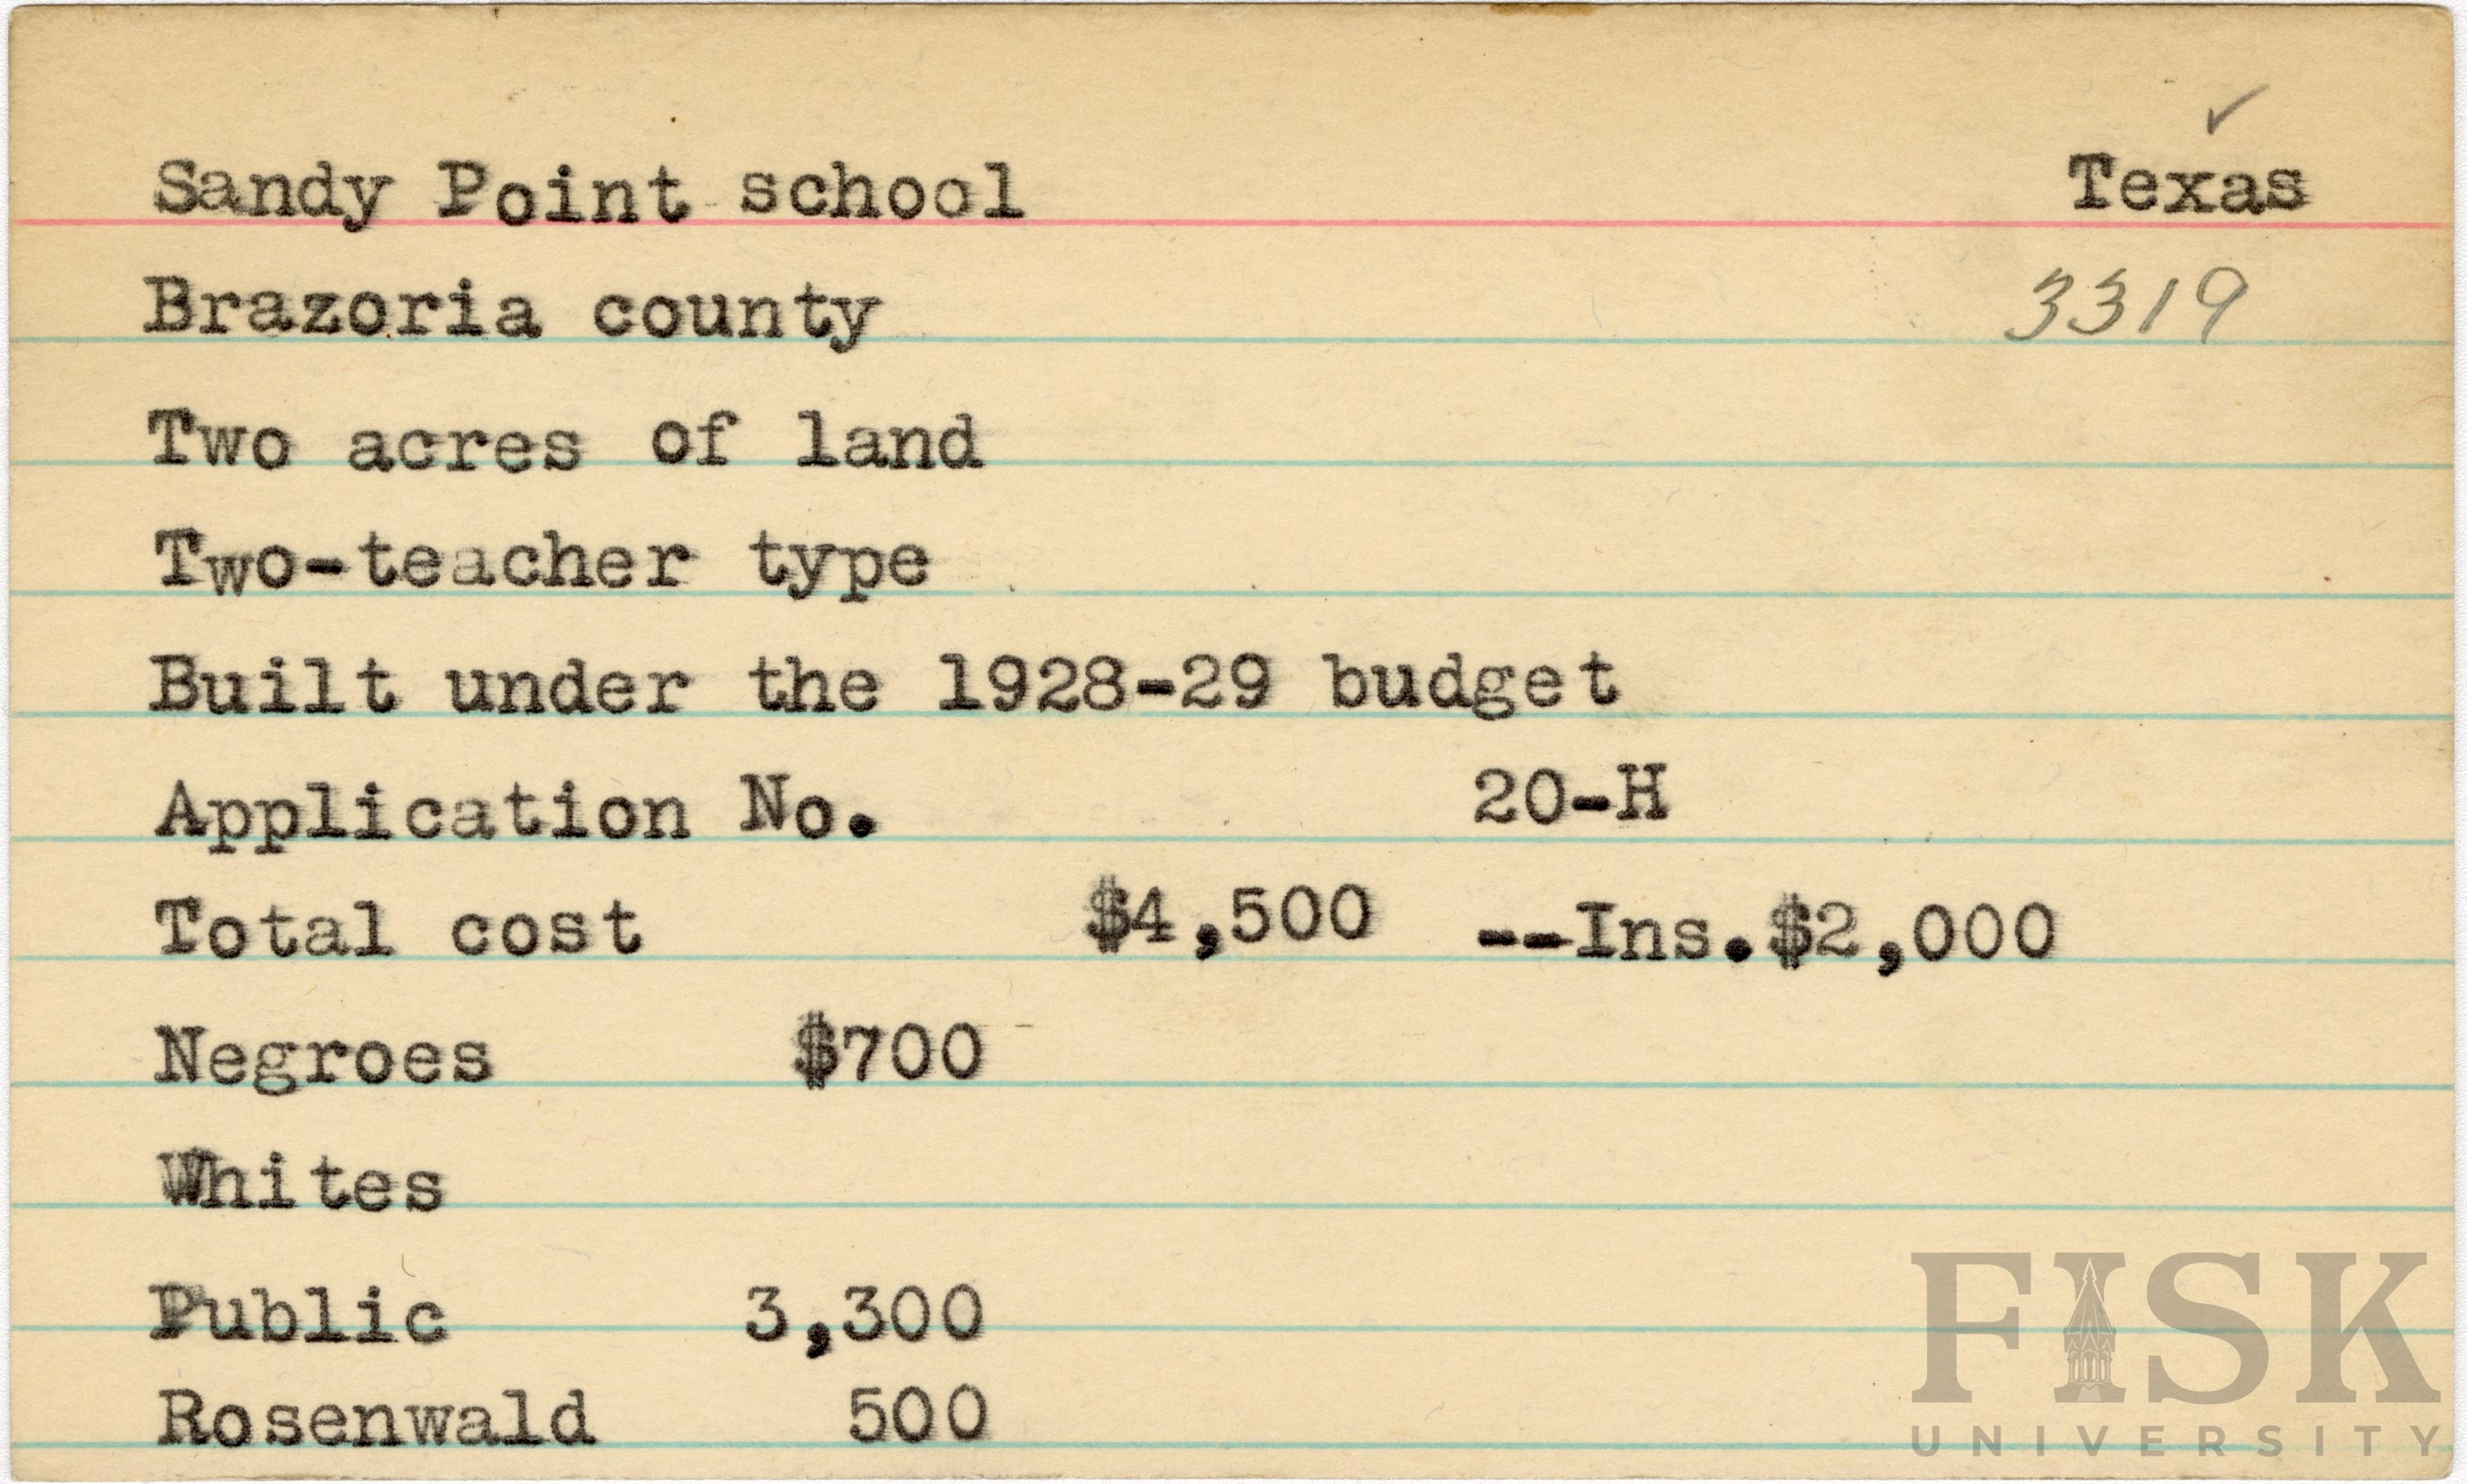 ✓
Sandy Point school Texas
Brazoria county 3319
Two acres of land
Two-teacher type
Built under the 1928-29 budget
Application No. 20-H
Total cost $4,500 --Ins.$2,000
Negroes $700
Whites
Public 3,300
Rosenwald 500
FISK
UNIVERSITY